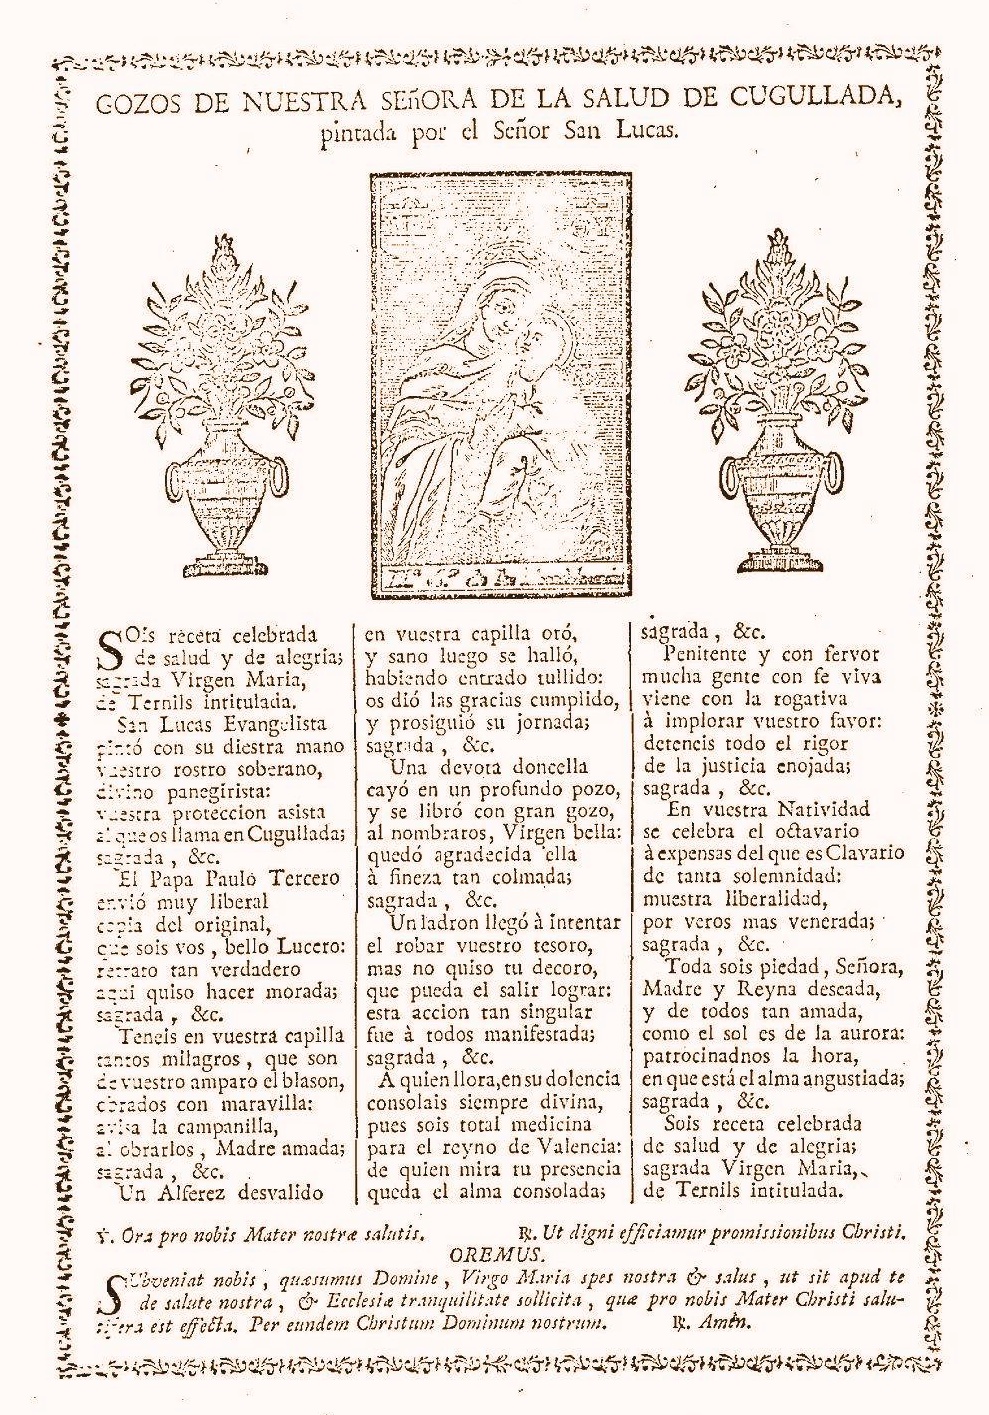 GOZOS DE NUESTRA SEñORA DE LA SALUD DE CUGULLADA,
pintada por el Señor San Lucas.
SOis receta celebrada
de salud y de alegria;
sagrada Virgen Maria,
de Ternils intitulada.
San Lucas Evangelista
pintó con su diestra mano
vuestro rostro soberano,
divino panegirista:
vuestra proteccion asista
al que os llama en Cugullada;
sagrada, &c.
El Papa Paulo Tercero
envió muy liberal
copia del original,
que sois vos, bello Lucero:
retrato tan verdadero
aqui quiso hacer morada;
sagrada, &c.
Teneis en vuestra capilla
tantos milagros, que son
de vuestro amparo el blason,
obrados con maravilla:
avisa la campanilla,
al obrarlos, Madre amada;
sagrada, &c.
Un Alferez desvalido
en vuestra capilla oró,
y sano luego se halló,
habiendo entrado tullido:
os dió las gracias cumplido,
y prosiguió su jornada;
sagrada, &c.
Una devota doncella
cayó en un profundo pozo,
y se libró con gran gozo,
al nombraros, Virgen bella:
quedó agradecida ella
à fineza tan colmada;
sagrada, &c.
Un ladron llegó à intentar
el robar vuestro tesoro,
mas no quiso tu decoro,
que pueda el salir lograr:
esta accion tan singular
fue à todos manifestada;
sagrada, &c.
A quien llora, en su dolencia
consolais siempre divina,
pues sois total medicina
para el reyno de Valencia:
de quien mira tu presencia
queda el alma consolada;
sagrada, &c.
Penitente y con fervor
mucha gente con fe viva
viene con la rogativa
à implorar vuestro favor:
deteneis todo el rigor
de la justicia enojada;
sagrada, &c.
En vuestra Natividad
se celebra el octavario
à expensas del que es Clavario
de tanta solemnidad:
muestra liberalidad,
por veros mas venerada;
sagrada, &c.
Toda sois piedad, Señora,
Madre y Reyna deseada,
y de todos tan amada,
como el sol es de la aurora:
patrocinadnos la hora,
en que está el alma angustiada;
sagrada, &c.
Sois receta celebrada
de salud y de alegria;
sagrada Virgen Maria,
de Ternils intitulada.
℣. Ora pro nobis Mater nostræ salutis. ℟. Ut digni efficiamur promissionibus Christi.
OREMUS.
SUbveniat nobis, quæsumus Domine, Virgo Maria spes nostra & salus, ut sit apud te
de salute nostra, & Ecclesiæ tranquilitate sollicita, quæ pro nobis Mater Christi salu-
tifera est effecta. Per eundem Christum Dominum nostrum. ℟. Amen.